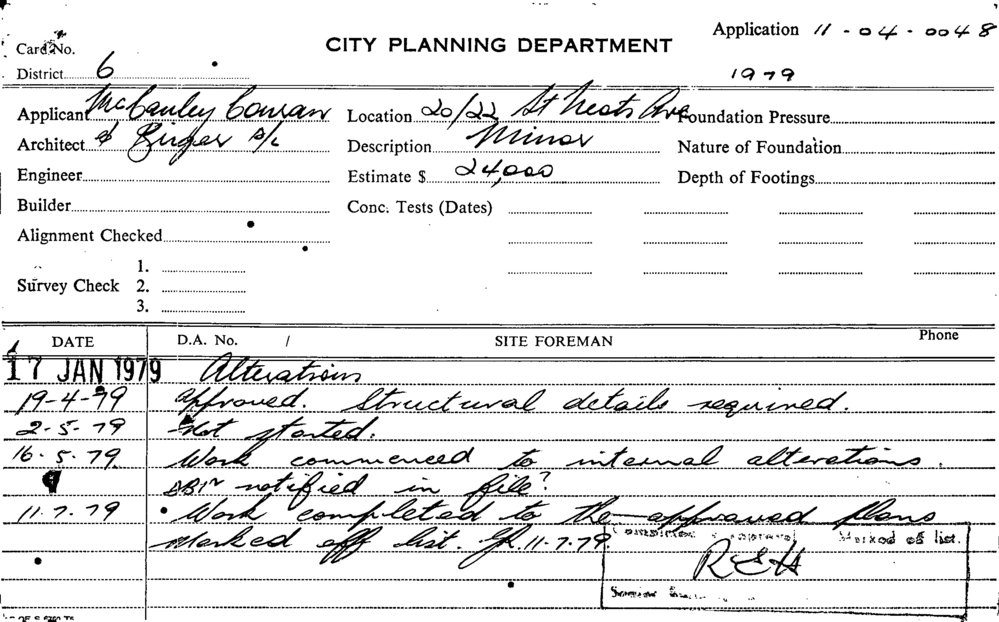 Application 11-04-0048
Card No.
CITY PLANNING DEPARTMENT
District 6
1979
Applicant McCauley Cowan Location 20/22 St Neots Ave Foundation Pressure
Architect & P/L Description Minor Nature of Foundation
Engineer Estimate $ 24,000 Depth of Footings
Builder Conc. Tests (Dates)
Alignment Checked
1.
Survey Check 2.
3.
DATE D.A. No. / SITE FOREMAN Phone
17 JAN 1979 Alterations
19-4-79 Approved. Structural details required.
2-5-79 Not started.
16.5.79. Work commenced to internal alterations.
notified in file?
11.7.79 Work completed to the approved plans
Marked off list. 11-7-79.
Marked off list.